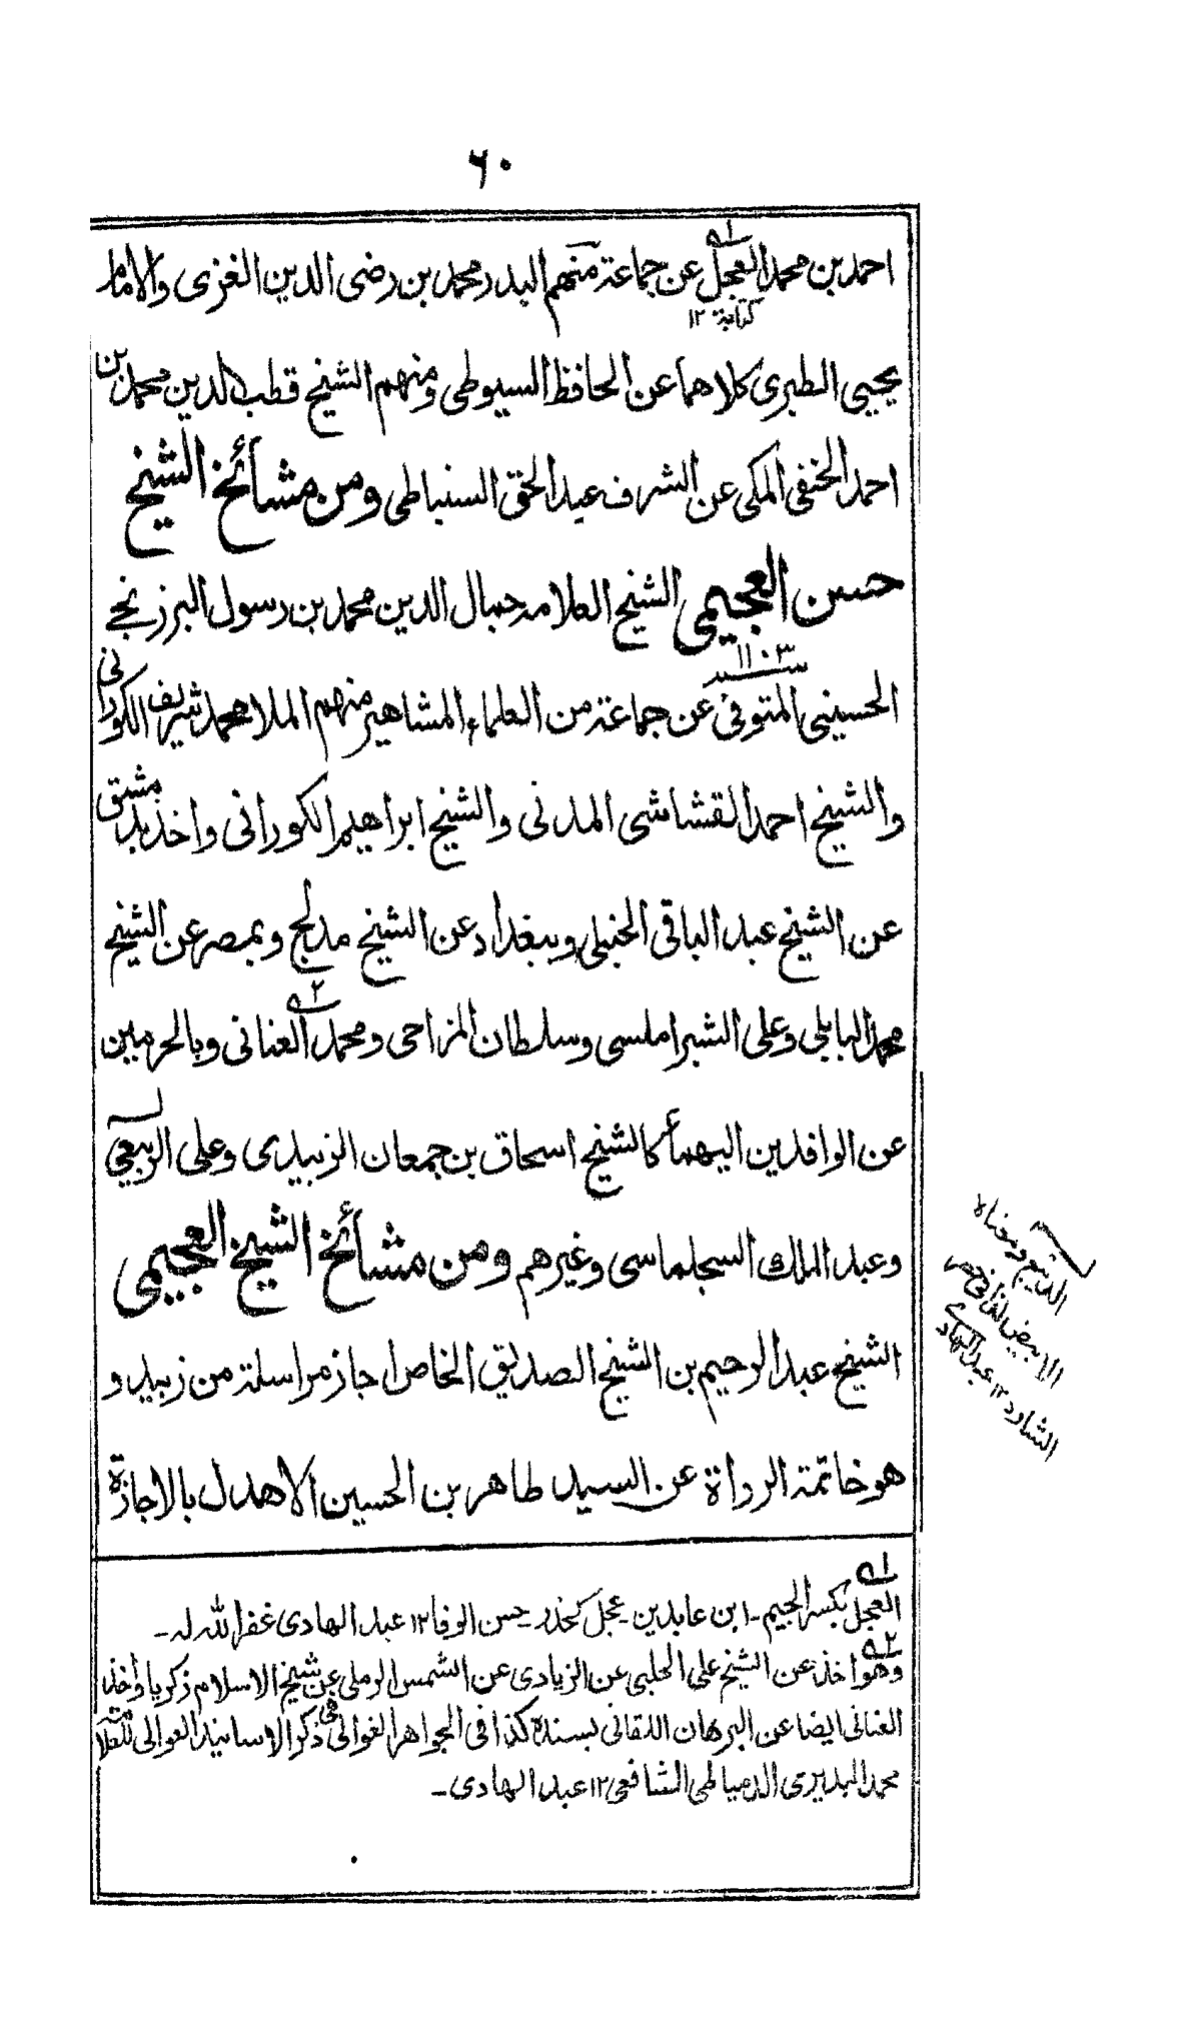 ٦٠
احمد بن محمد العجل عن جماعة منهم البدر محمد بن رضى الدين الغزى والامام
كتابة ١٢
يحيى الطبرى كلاهما عن الحافظ السيوطى ومنهم الشيخ قطب الدين محمد بن
احمد الحنفى المكى عن الشرف عبد الحق السنباطى ومن مشائخ الشيخ
حسن العجيمى الشيخ العلامه جمال الدين محمد بن رسول البرزنجے
الحسينى المتوفى سنه ١١٠٣ عن جماعة من العلماء المشاهير منهم الملا محمد شريف الكورانى
والشيخ احمد القشاشى المدنى والشيخ ابراهيم الكورانى واخذ بدمشق
عن الشيخ عبد الباقى الحنبلى وببغداد عن الشيخ مدلج وبمصر عن الشيخ
محمد البابلى وعلى الشبراملسى وسلطان المزاحى ومحمد العنانى وبالحرمين
عن الوافدين اليهما كالشيخ اسحاق بن جمعان الزبيدى وعلى الربيعى
وعبد الملك السجلماسى وغيرهم ومن مشائخ الشيخ العجيمى
الشيخ عبد الرحيم بن الشيخ الصديق الخاص اجاز مراسلة من زبيد و
هو خاتمة الرواة عن السيد طاهر بن الحسين الاهدل بالاجازة
الديبع ومعناه
الابيض
عبد الهادے
١ه
العجل بكسر الجيم ـ ابن عابدين ـ عجل كخدر ـ حسن الوفا ١٢ عبد الهادى غفر الله له ـ
٢ه
وهو اخذ عن الشيخ على الحلبى عن الزيادى عن الشمس الرملى عن شيخ الاسلام زكريا واخذ
العنانى ايضا عن البرهان اللقانى بسنده كذا فى الجواهر الغوالى فى ذكر الاسانيد العوالى للعلامة
محمد البديرى الدمياطى الشافعى ١٢ عبد الهادى ـ